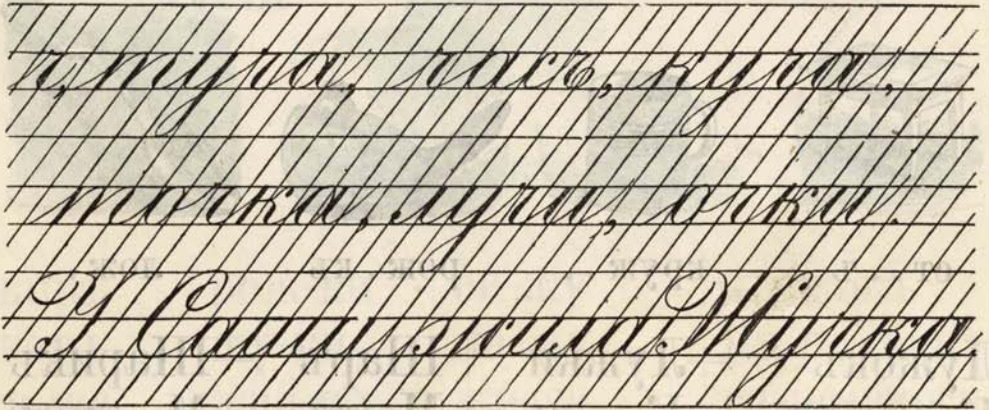 ч, туча, часъ, куча,
точка, лучи, очки.
У Саши жила Жучка.